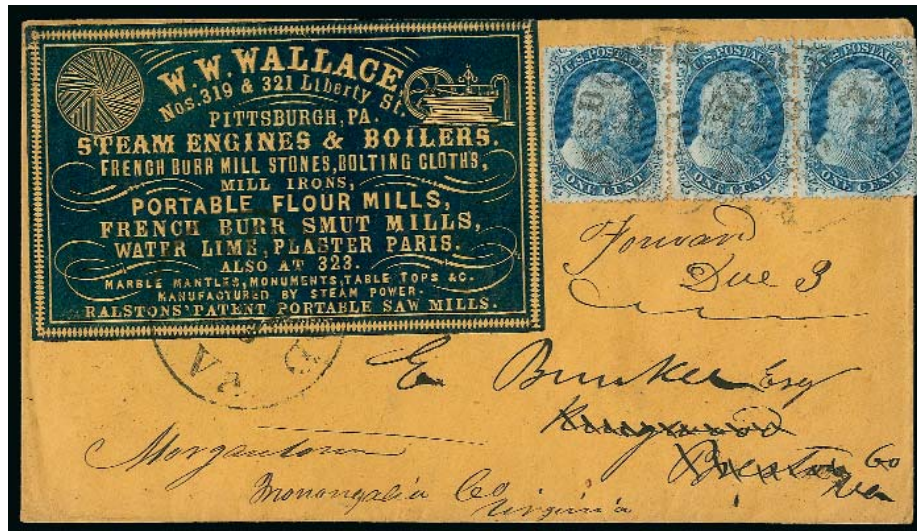 W. W. WALLACE,
Nos. 319 & 321 Liberty St.
PITTSBURGH, PA.
STEAM ENGINES & BOILERS.
FRENCH BURR MILL STONES, BOLTING CLOTHS,
MILL IRONS,
PORTABLE FLOUR MILLS,
FRENCH BURR SMUT MILLS,
WATER LIME, PLASTER PARIS.
ALSO AT 323.
MARBLE MANTLES, MONUMENTS, TABLE TOPS &C.
MANUFACTURED BY STEAM POWER.
RALSTONS' PATENT PORTABLE SAW MILLS.
U.S. POSTAGE
ONE CENT
U.S. POSTAGE
ONE CENT
U.S. POSTAGE
ONE CENT
Forward
Due 3
VA
E. Bunker Esq
Kingwood
Preston Co
Va
Morgantown
Monongalia Co
Virginia